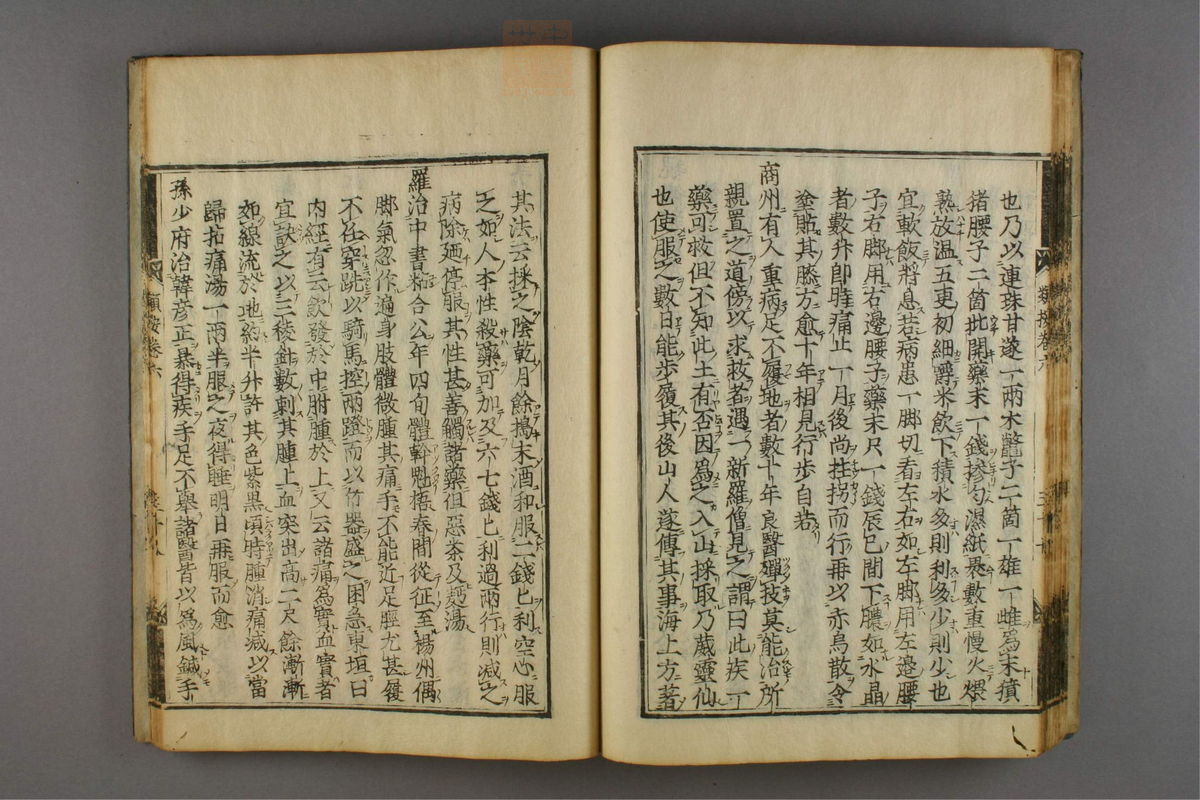 也乃以連珠甘遂一兩木鱉子二箇一雄一雌為末獖
猪腰子二箇批開藥末一錢摻勻濕紙裹數重慢火煨
熟放温五更初細嚼米飲下積水多則利多少則少也
宜軟飯將息若病患一脚切看左右如左脚用左邊腰
子右脚用右邊腰子藥末只一錢辰巳間下膿如水晶
者數升即時痛止一月後尚拄拐而行再以赤烏散令
塗貼其膝方愈十年相見行步自若
商州有人重病足不履地者數十年良醫殫技莫能治所
親置之道傍以求救者遇一新羅僧見之謂曰此疾一
藥可救但不知此土有否因為之入山採取乃葳靈仙
也使服之數日能步履其後山人遂傳其事海上方著
其法云採之陰乾月餘搗末酒和服二錢匕利空心服
之如人本性殺藥可加及六七錢匕利過兩行則減之
病除廼停服其性甚善觸諸藥但惡茶及麵湯
羅治中書粘合公年四旬體幹魁梧春間從征至揚州偶
脚氣忽作遍身肢體微腫其痛手不能近足脛尤甚履
不任穿跣以騎馬控兩鐙而以竹器盛之困急東垣曰
内經有云飲發於中胕腫於上又云諸痛為實血實者
宜訣之以三稜針數刺其腫上血突出高二尺餘漸漸
如線流於地約半升許其色紫黑頃時腫消痛減以當
歸拈痛湯一兩半服之夜得睡明日再服而愈
孫少府治韓彦正暴得疾手足不舉諸醫皆以為風鍼手
類按卷六
類按卷六